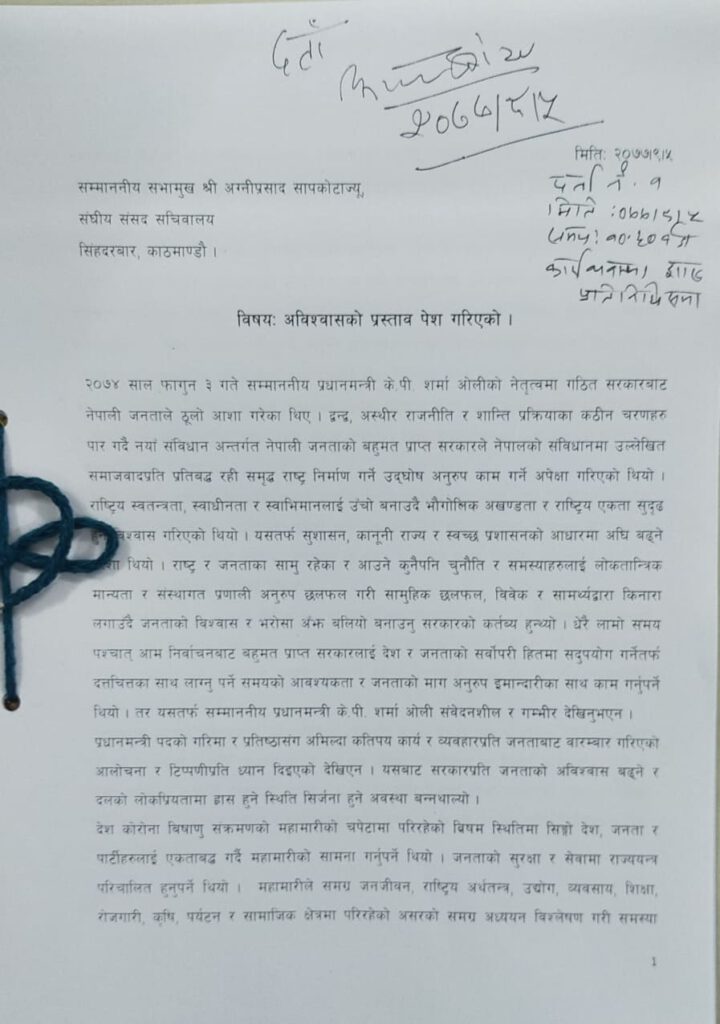 दर्ता
२०७७/९/५
मिति: २०७७।९।५
सम्माननीय सभामुख श्री अग्नीप्रसाद सापकोटाज्यू,
दर्ता नं. १
संघीय संसद सचिवालय
मिति: ०७७/९/५
सिंहदरबार, काठमाण्डौ ।
प्रतिनिधि सभा
विषय: अविश्वासको प्रस्ताव पेश गरिएको ।
२०७४ साल फागुन ३ गते सम्माननीय प्रधानमन्त्री के.पी. शर्मा ओलीको नेतृत्वमा गठित सरकारबाट
नेपाली जनताले ठूलो आशा गरेका थिए । द्वन्द्व, अस्थीर राजनीति र शान्ति प्रक्रियाका कठीन चरणहरु
पार गर्दै नयाँ संविधान अन्तर्गत नेपाली जनताको बहुमत प्राप्त सरकारले नेपालको संविधानमा उल्लेखित
समाजवादप्रति प्रतिबद्ध रही समृद्ध राष्ट्र निर्माण गर्ने उद्घोष अनुरुप काम गर्ने अपेक्षा गरिएको थियो ।
राष्ट्रिय स्वतन्त्रता, स्वाधीनता र स्वाभिमानलाई उँचो बनाउदै भौगोलिक अखण्डता र राष्ट्रिय एकता सुदृढ
विश्वास गरिएको थियो । यसतर्फ सुशासन, कानूनी राज्य र स्वच्छ प्रशासनको आधारमा अघि बढ्ने
थियो । राष्ट्र र जनताका सामु रहेका र आउने कुनैपनि चुनौति र समस्याहरुलाई लोकतान्त्रिक
मान्यता र संस्थागत प्रणाली अनुरुप छलफल गरी सामुहिक छलफल, विवेक र सामर्थ्यद्वारा किनारा
लगाउँदै जनताको विश्वास र भरोसा अँझ बलियो बनाउनु सरकारको कर्तव्य हुन्थ्यो । धेरै लामो समय
पश्चात् आम निर्वाचनबाट बहुमत प्राप्त सरकारलाई देश र जनताको सर्वोपरी हितमा सदुपयोग गर्नेतर्फ
दत्तचित्तका साथ लाग्नु पर्ने समयको आवश्यकता र जनताको माग अनुरुप इमान्दारीका साथ काम गर्नुपर्ने
थियो । तर यसतर्फ सम्माननीय प्रधानमन्त्री के.पी. शर्मा ओली संवेदनशील र गम्भीर देखिनुभएन ।
प्रधानमन्त्री पदको गरिमा र प्रतिष्ठासंग अमिल्दा कतिपय कार्य र व्यवहारप्रति जनताबाट वारम्बार गरिएको
आलोचना र टिप्पणीप्रति ध्यान दिइएको देखिएन । यसबाट सरकारप्रति जनताको अविश्वास बढ्ने र
दलको लोकप्रियतामा ह्रास हुने स्थिति सिर्जना हुने अवस्था बन्नथाल्यो ।
देश कोरोना बिषाणु संक्रमणको महामारीको चपेटामा परिरहेको बिषम स्थितिमा सिङ्गो देश, जनता र
पार्टीहरुलाई एकताबद्ध गर्दै महामारीको सामना गर्नुपर्ने थियो । जनताको सुरक्षा र सेवामा राज्ययन्त्र
परिचालित हुनुपर्ने थियो । महामारीले समग्र जनजीवन, राष्ट्रिय अर्थतन्त्र, उद्योग, व्यवसाय, शिक्षा,
रोजगारी, कृषि, पर्यटन र सामाजिक क्षेत्रमा परिरहेको असरको समग्र अध्ययन विश्लेषण गरी समस्या
1